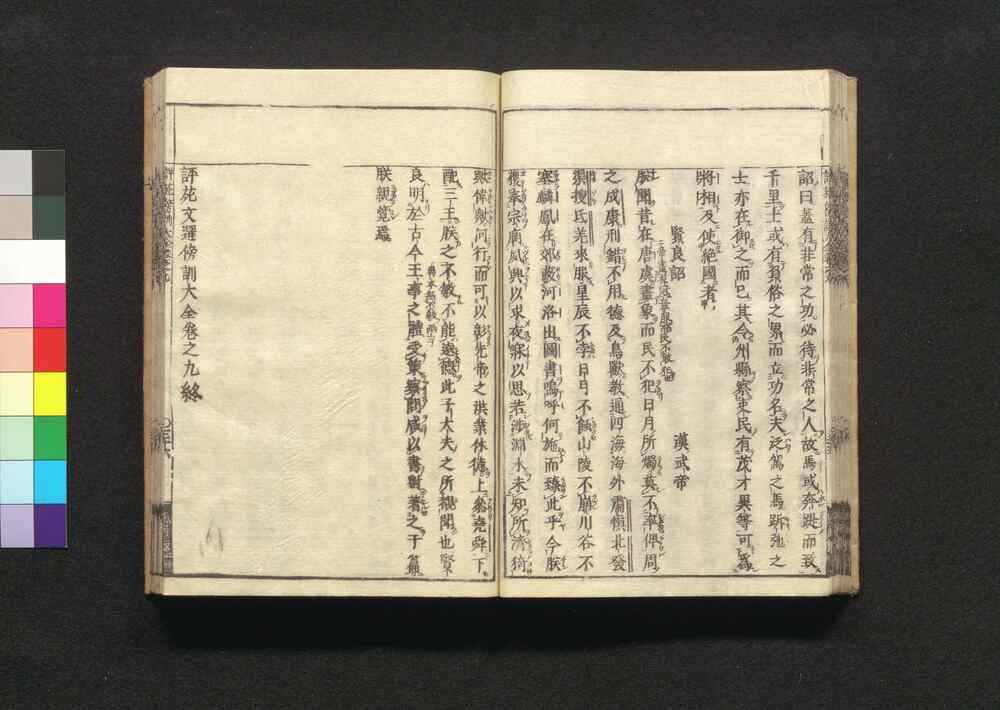 詔曰蓋有非常之功必待非常之人故馬或奔踶而致
千里士或有負俗之累而立功名夫泛駕之馬跅弛之
士亦在御之而已其令州縣察吏民有茂才異等可爲
將相及使絕國者
賢良詔　漢武帝
朕聞昔在唐虞畫象而民不犯日月所燭莫不率俾周
之成康刑錯不用德及鳥獸教通四海海外肅慎北發
渠搜氐羌來服星辰不孛日月不蝕山陵不崩川谷不
塞麟鳳在郊藪河洛出圖書嗚呼何施而臻此乎今朕
獲奉宗廟夙興以求夜寐以思若涉淵水未知所濟猗
與偉歟何行而可以彰先帝之洪業休德上參堯舜下
配三王朕之不敏不能遠德此子大夫之所覩聞也賢
良明於古今王事之體受策察問咸以書對著之于篇
朕親覽焉
評苑文選傍訓大全卷之九終